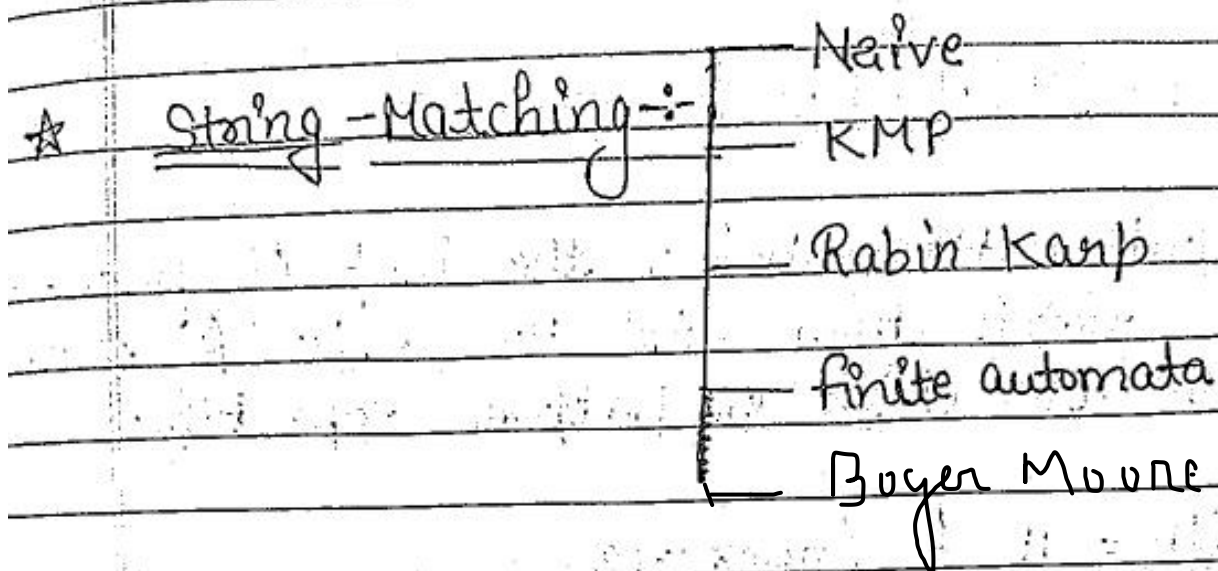 Naive
☆ String - Matching -:-
KMP
Rabin Karp
finite automata
Boyer Moore